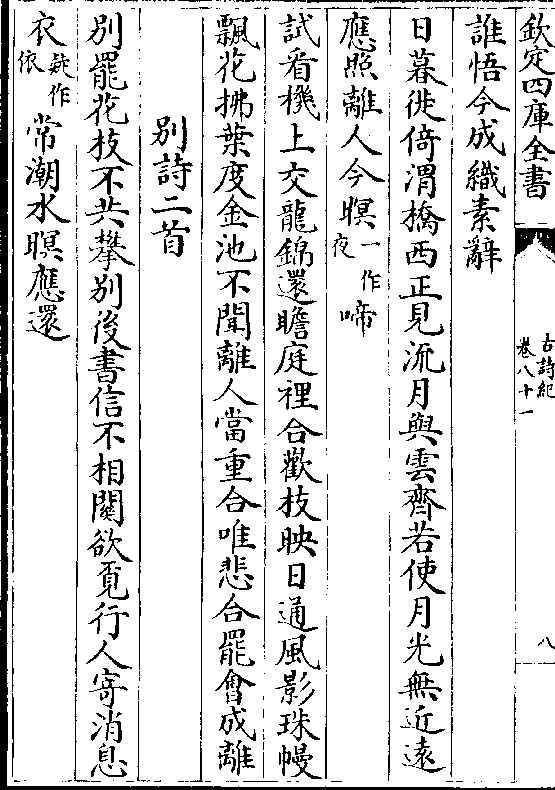 欽定四庫全書
古詩紀
卷八十一
八
誰悟今成織素辭
日暮徙倚渭橋西正見流月與雲齊若使月光無近遠
應照離人今暝一作夜啼
試看機上交龍錦還瞻庭裡合歡枝映日通風影珠幔
飄花拂葉度金池不聞離人當重合唯悲合罷會成離
別詩二首
別罷花枝不共攀别後書信不相關欲覓行人寄消息
衣疑作依常潮水暝應還